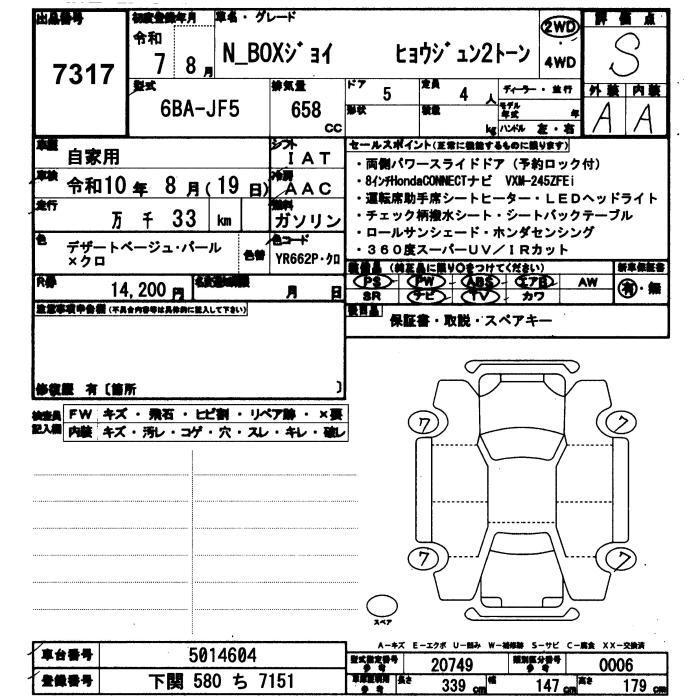 出品番号
7317
初度登録年月
令和
7 8月
車名・グレード
N_BOXジョイ ヒョウジュン2トーン
2WD
・
4WD
評価点
S
外装 内装
A A
型式
6BA-JF5
排気量
658
cc
ドア
5
定員
4 人
形状
積載
kg
ディーラー・並行
モデル年式 年
ハンドル 左・右
車歴
自家用
シフト
IAT
車検
令和10年 8月(19日)
冷房
AAC
走行
万 千 33 km
燃料
ガソリン
色
デザートベージュ・パール
×クロ
色替
色コード
YR662P・クロ
R券
14,200円
名変期限
月 日
セールスポイント(正常に機能するものに限ります)
・両側パワースライドドア(予約ロック付)
・8インチHondaCONNECTナビ VXM-245ZFEi
・運転席助手席シートヒーター・LEDヘッドライト
・チェック柄撥水シート・シートバックテーブル
・ロールサンシェード・ホンダセンシング
・360度スーパーUV/IRカット
装備品(純正品に限り○をつけてください)
PS PW ABS エアB AW
SR ナビ TV カワ
新車保証書
有・無
後日品
保証書・取説・スペアキー
注意事項申告欄(不具合内容等は具体的に記入して下さい)
修復歴 有〔箇所 〕
検査員
記入欄
FW キズ・飛石・ヒビ割・リペア跡・×要
内装 キズ・汚レ・コゲ・穴・スレ・キレ・破レ
7 7
7 7
スペア
A-キズ E-エクボ U-凹み W-補修跡 S-サビ C-腐食 XX-交換済
車台番号
5014604
登録番号
下関 580 ち 7151
型式指定番号
参考
20749
類別区分番号
参考
0006
車庫証明用
参考
長さ
339 cm
幅
147 cm
高さ
179 cm